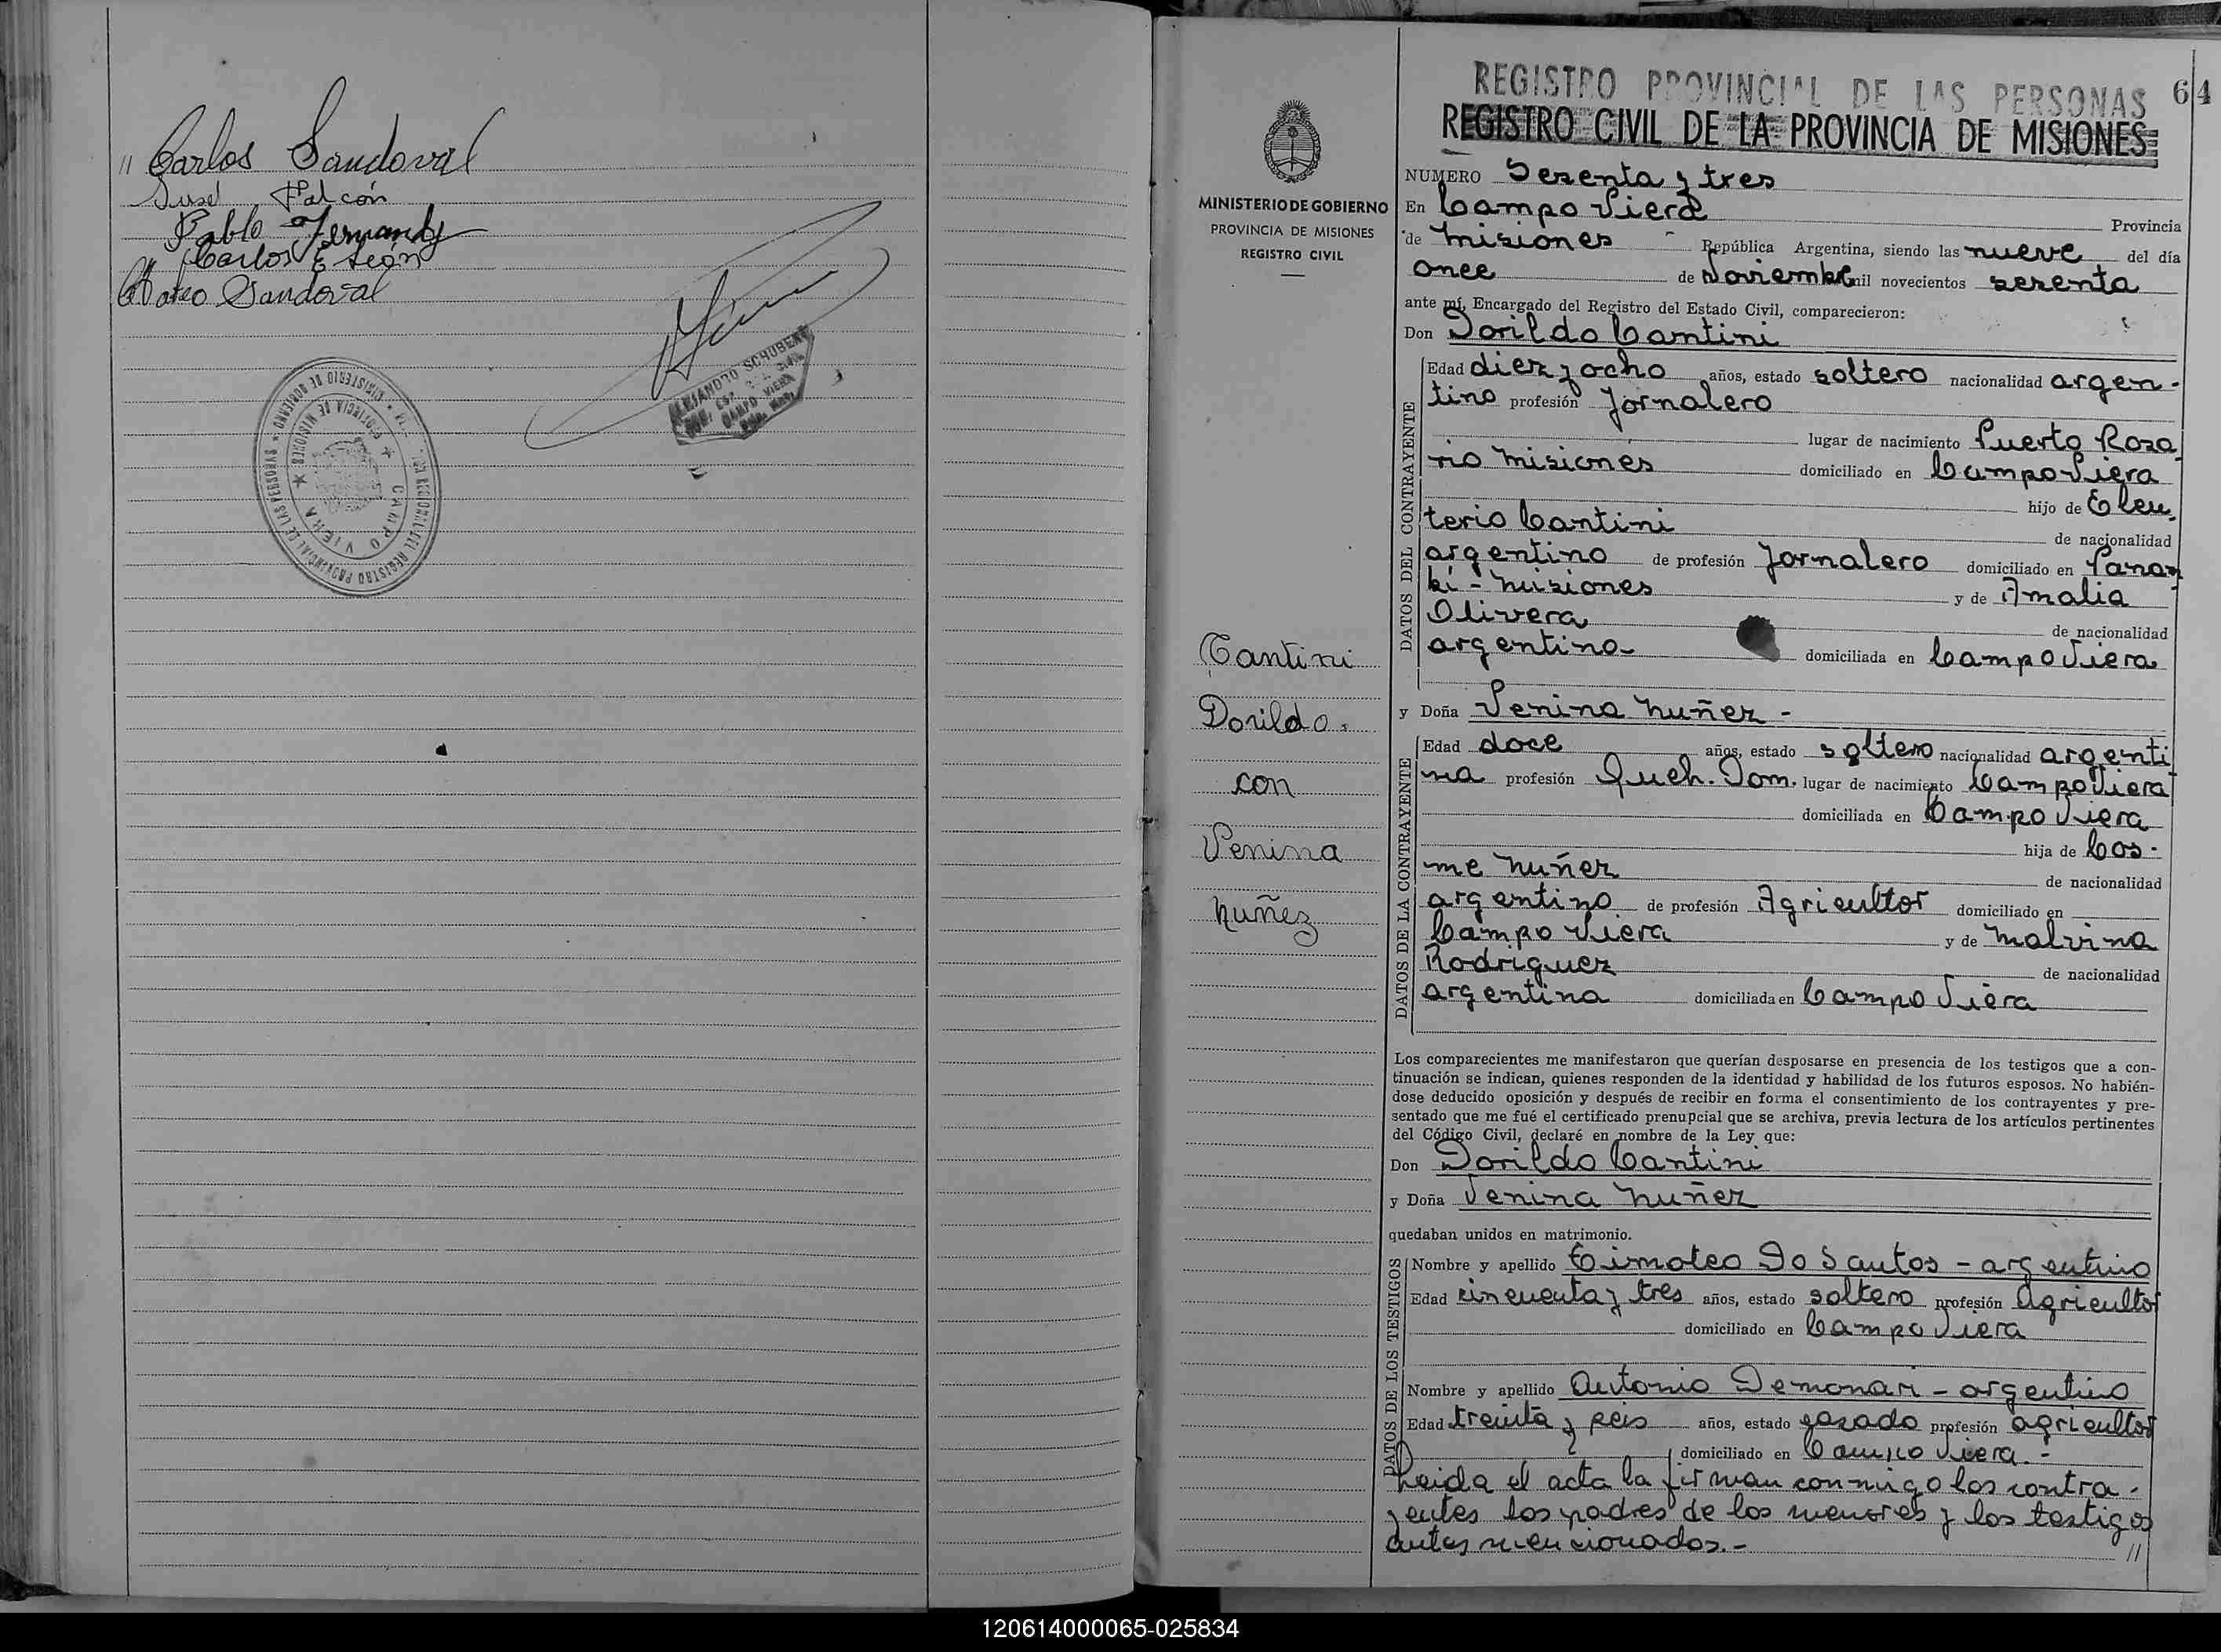 // Carlos Sandoval
Falcón
Pablo
Carlos
Mateo Sandoval
ALEJANDRO SCHUBERT
CAMPO VIERA
CAMPO VIERA
64
REGISTRO PROVINCIAL DE LAS PERSONAS
REGISTRO CIVIL DE LA PROVINCIA DE MISIONES
MINISTERIO DE GOBIERNO
PROVINCIA DE MISIONES
REGISTRO CIVIL
Cantini
Dorildo.
con
Venina
Nuñez
NUMERO Sesenta y tres
En Campo Viera Provincia
de Misiones - República Argentina, siendo las nueve del día
once de Noviembre mil novecientos sesenta
ante mí, Encargado del Registro del Estado Civil, comparecieron:
Don Dorildo Cantini
DATOS DEL CONTRAYENTE
Edad diez y ocho años, estado soltero nacionalidad argen-
tino profesión Jornalero
lugar de nacimiento Puerto Rosa
rio Misiones domiciliado en Campo Viera
hijo de Eleu-
terio Cantini de nacionalidad
argentino de profesión Jornalero domiciliado en Panam
bí - Misiones y de Amalia
Olivera de nacionalidad
argentina domiciliada en Campo Viera
y Doña Venina Nuñez -
DATOS DE LA CONTRAYENTE
Edad doce años, estado soltero nacionalidad argenti
na profesión Queh. Dom. lugar de nacimiento Campo Viera
domiciliada en Campo Viera
hija de Cos-
me Nuñez de nacionalidad
argentino de profesión Agricultor domiciliado en
Campo Viera y de Malvina
Rodriguez de nacionalidad
argentina domiciliada en Campo Viera
Los comparecientes me manifestaron que querían desposarse en presencia de los testigos que a con-
tinuación se indican, quienes responden de la identidad y habilidad de los futuros esposos. No habién-
dose deducido oposición y después de recibir en forma el consentimiento de los contrayentes y pre-
sentado que me fué el certificado prenupcial que se archiva, previa lectura de los artículos pertinentes
del Código Civil, declaré en nombre de la Ley que:
Don Dorildo Cantini
y Doña Venina Nuñez
quedaban unidos en matrimonio.
DATOS DE LOS TESTIGOS
Nombre y apellido Timoteo Do Santos - argentino
Edad cincuenta y tres años, estado soltero profesión Agricultor
domiciliado en Campo Viera
Nombre y apellido Antonio Demonari - argentino
Edad treinta y seis años, estado casado profesión agricultor
domiciliado en Campo Viera.-
Leida el acta la firman conmigo los contra-
yentes los padres de los menores y los testigos
antes mencionados.- //
120614000065-025834